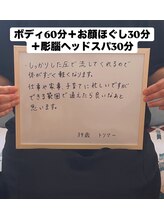 ボディ60分＋お顔ほぐし30分
＋彫脳ヘッドスパ30分
しっかりした圧で流してくれるので
体がすごく軽くなります。
仕事や家事、子育てに忙しいですが
できる範囲で通えたら良いなあと
思います。
39歳